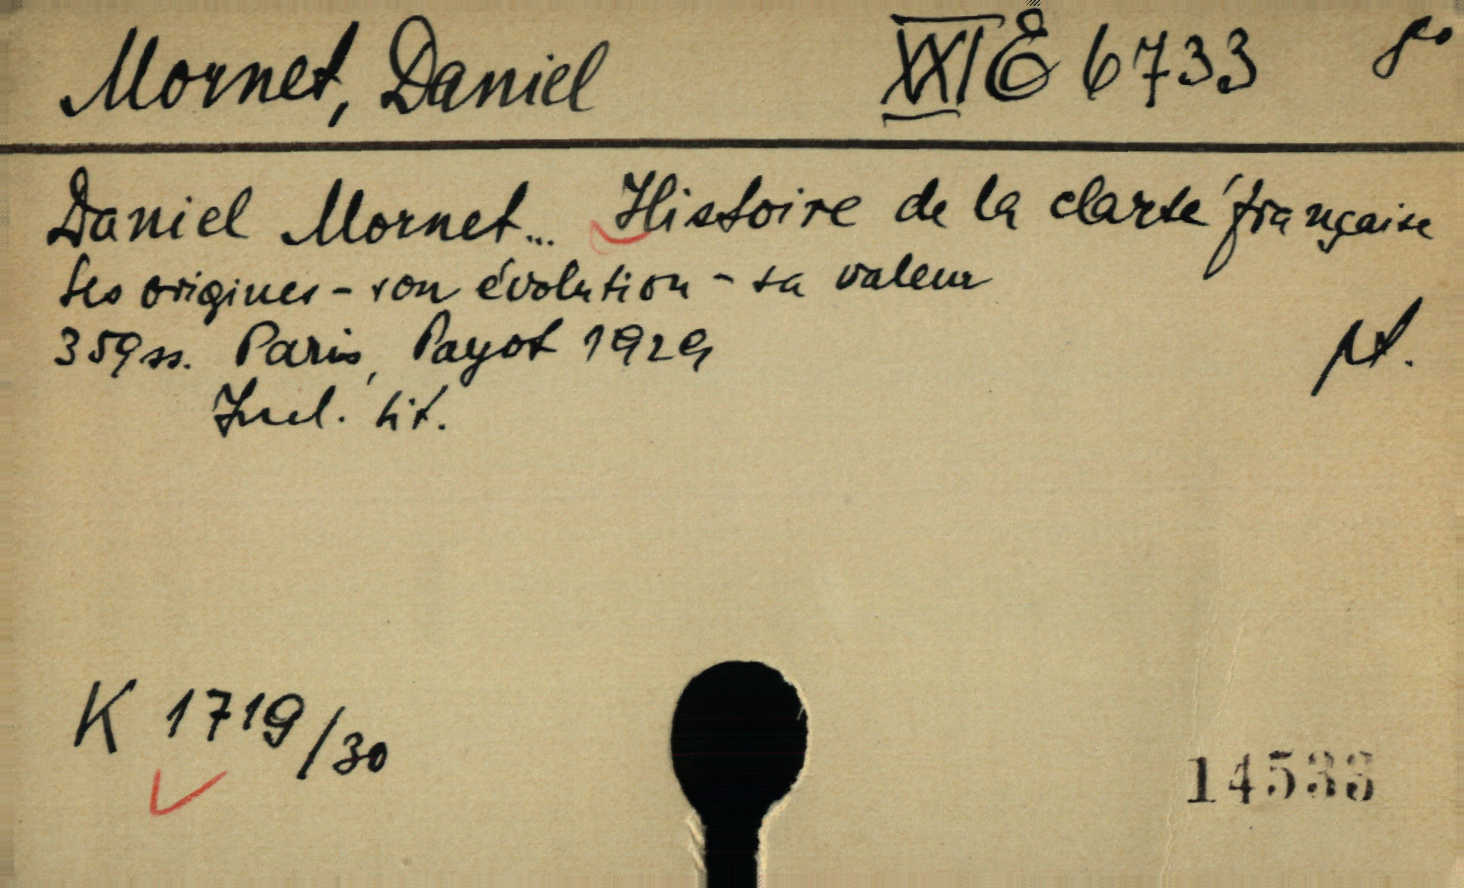 Mornet, Daniel XXI E 6733 8o
Daniel Mornet... Histoire de la clarté française
Ses origines - son évolution - sa valeur
359 ss. Paris, Payot 1929
pt.
Incl. tit.
K 1719/30
14533